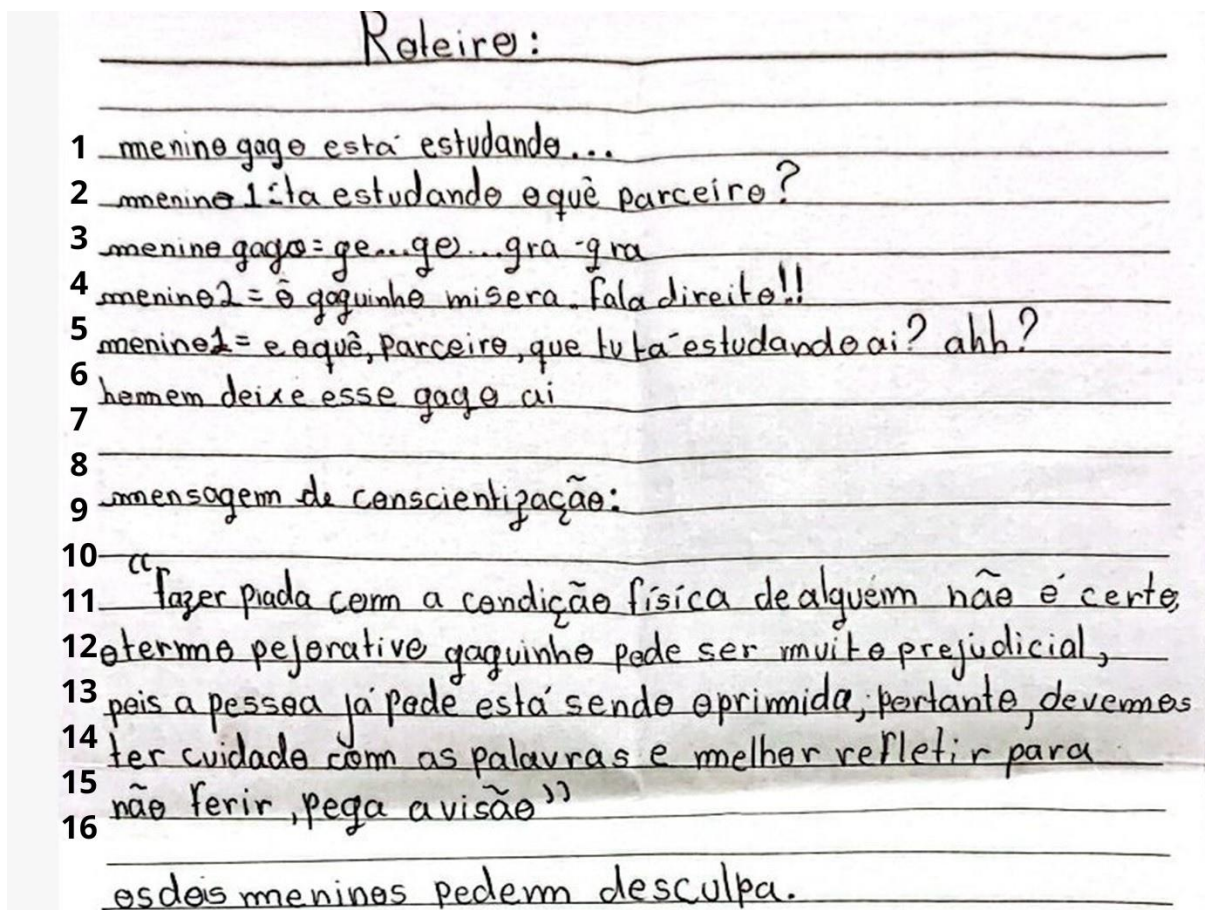 Roteiro:
1 menino gago está estudando...
2 menino 1: ta estudando oquê parceiro?
3 menino gago= ge...ge...gra-gra
4 menino2 = ô gaguinho misera. Fala direito!!
5 menino1= e oquê, Parceiro, que tu tá estudando ai? ahh?
6 homem deixe esse gago ai
7
8
9 mensagem de conscientização:
10
11 "fazer piada com a condição física de alguém não é certo,
12 o termo pejorativo gaguinho pode ser muito prejudicial,
13 pois a pessoa já pode está sendo oprimida, portanto, devemos
14 ter cuidado com as palavras e melhor refletir para
15 não ferir, pega a visão"
16
os dois meninos pedem desculpa.